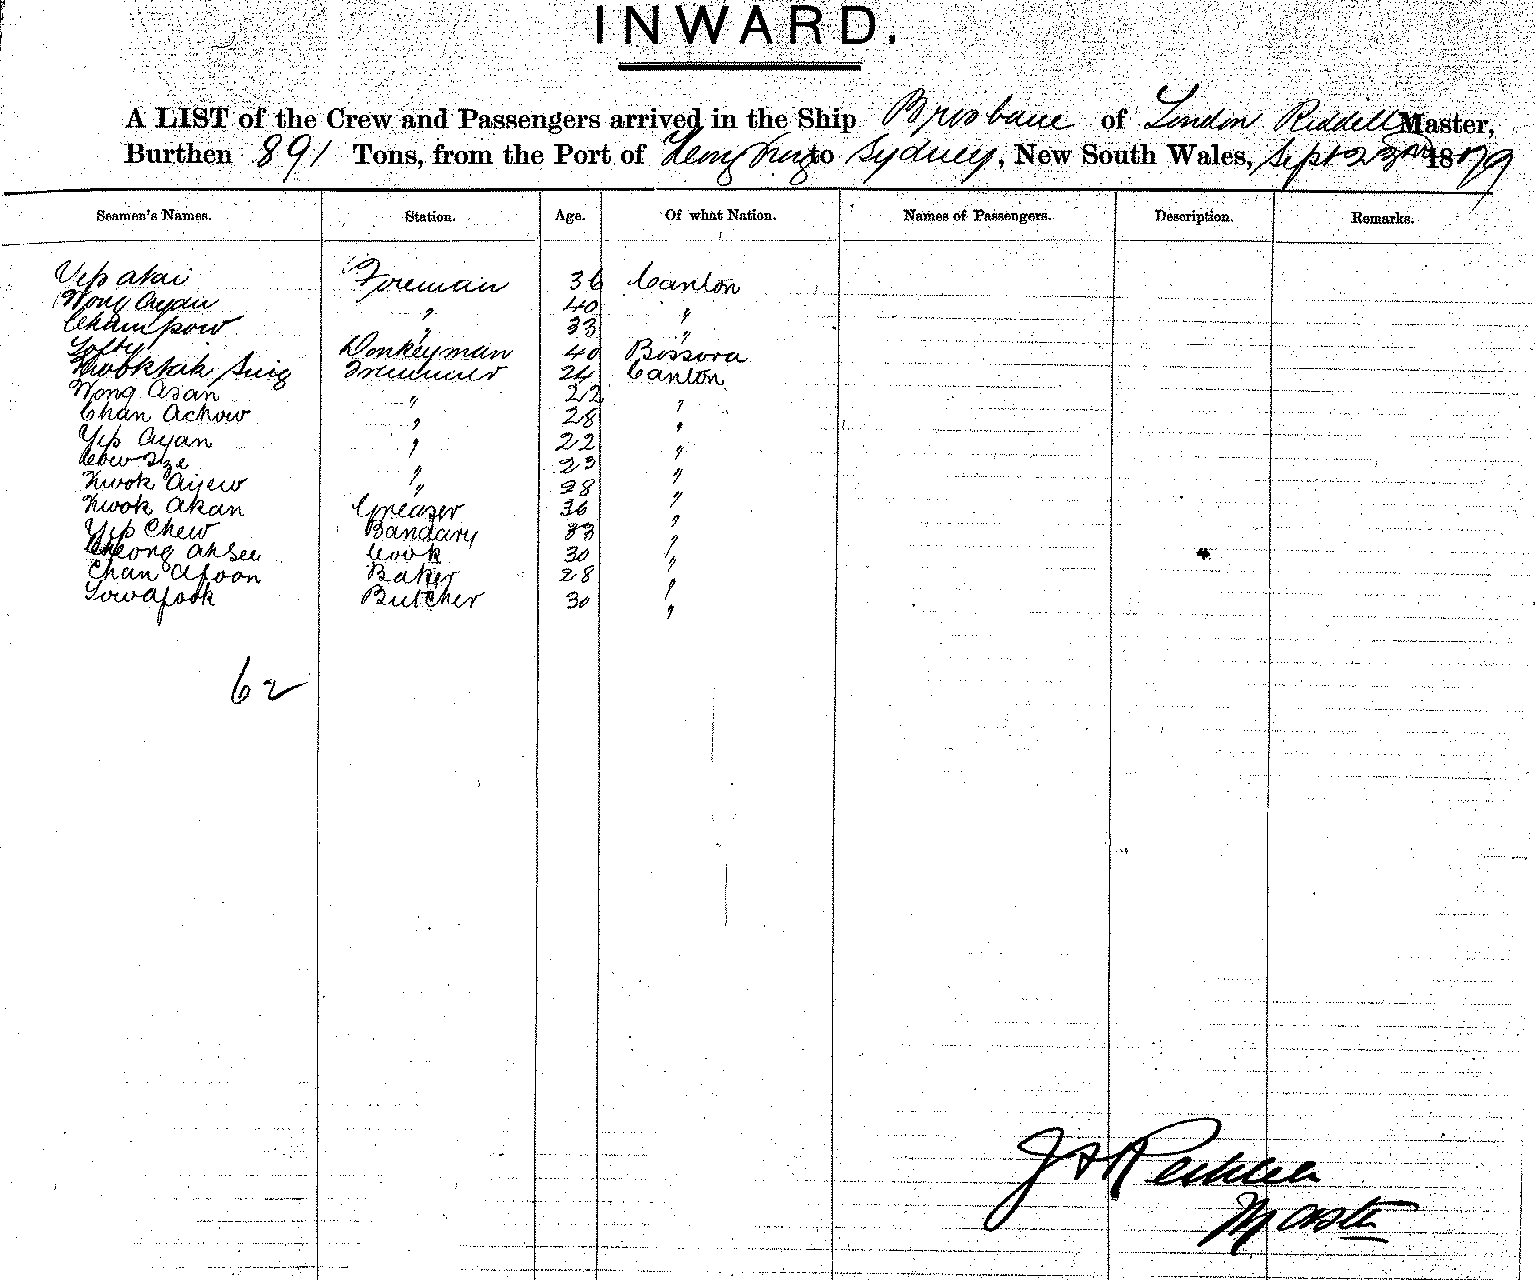 INWARD.
A LIST of the Crew and Passengers arrived in the Ship Brisbane of London Riddell Master,
Burthen 891 Tons, from the Port of to Sydney, New South Wales, Sept 23rd 1879
Seamen's Names. Station. Age. Of what Nation. Names of Passengers. Description. Remarks.
Yip akai Fireman 36 Canton
Wong ayau " 40 "
Cham pow " 33 "
Donkeyman 40 Bossora
Sing Trimmer 24 Canton
Wong asan " 22 "
Chan Achow " 28 "
Yip ayan " 22 "
" 23 "
Kwok " 28 "
Kwok akan Greaser 36 "
Yip Chew Bandary 33 "
Cheong ah See Cook 30 "
Chan afoon Baker 28 "
Butcher 30 "
62
J Riddell
Master